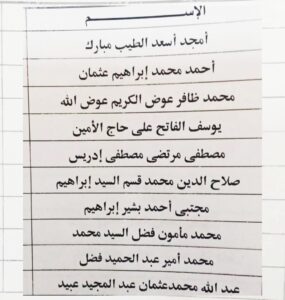 الإســـم
أمجد أسعد الطيب مبارك
أحمد محمد إبراهيم عثمان
محمد ظافر عوض الكريم عوض الله
يوسف الفاتح على حاج الأمين
مصطفى مرتضى مصطفى إدريس
صلاح الدين محمد قسم السيد إبراهيم
مجتبى أحمد بشير إبراهيم
محمد مأمون فضل السيد محمد
محمد أمير عبد الحميد فضل
عبد الله محمدعثمان عبد المجيد عبيد